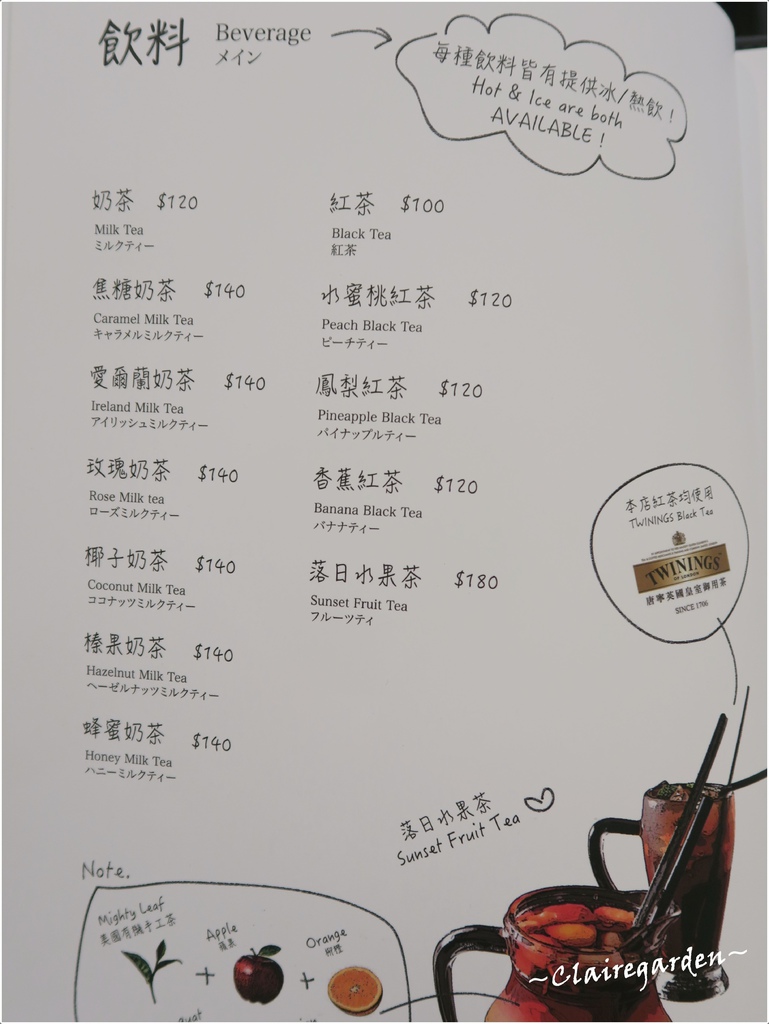 飲料 Beverage
メイン
每種飲料皆有提供冰/熱飲！
Hot & Ice are both
AVAILABLE！
奶茶 $120
Milk Tea
ミルクティー
焦糖奶茶 $140
Caramel Milk Tea
キャラメルミルクティー
愛爾蘭奶茶 $140
Ireland Milk Tea
アイリッシュミルクティー
玫瑰奶茶 $140
Rose Milk tea
ローズミルクティー
椰子奶茶 $140
Coconut Milk Tea
ココナッツミルクティー
榛果奶茶 $140
Hazelnut Milk Tea
ヘーゼルナッツミルクティー
蜂蜜奶茶 $140
Honey Milk Tea
ハニーミルクティー
紅茶 $100
Black Tea
紅茶
水蜜桃紅茶 $120
Peach Black Tea
ピーチティー
鳳梨紅茶 $120
Pineapple Black Tea
パイナップルティー
香蕉紅茶 $120
Banana Black Tea
バナナティー
落日水果茶 $180
Sunset Fruit Tea
フルーツティ
本店紅茶均使用
TWININGS Black Tea
TWININGS
OF LONDON
唐寧英國皇室御用茶
SINCE 1706
落日水果茶
Sunset Fruit Tea
Note.
Mighty Leaf
美國有機手工茶
+
Apple
蘋果
+
Orange
柳橙
~Clairegarden~